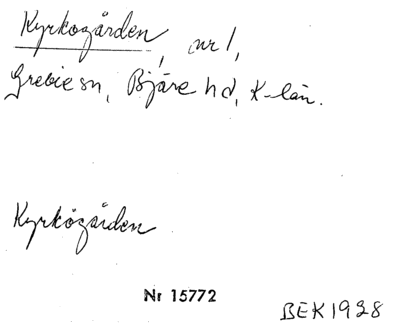 Kyrkogården, nr 1,
Grevie sn, Bjäre hd, K-län.
Kyrkogården
Nr 15772
BEK 1928